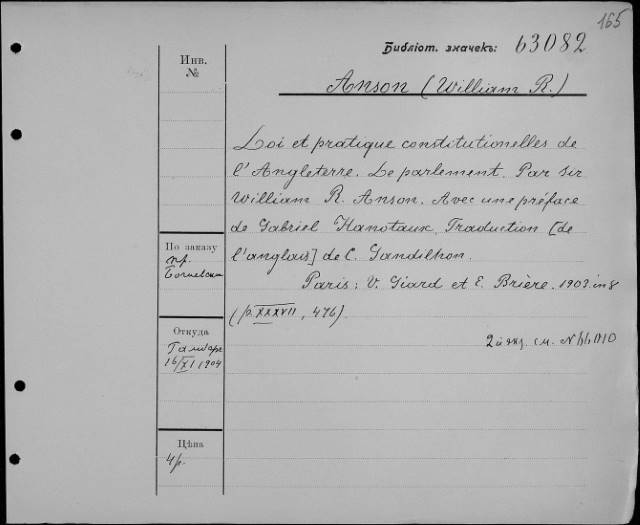 165
Библіот. значекъ: 63082
Инв.
№
Anson (William R.)
Loi et pratique constitutionelles de
l'Angleterre. Le parlement. Par Sir
William R. Anson. Avec une préface
de Gabriel Hanotaux. Traduction [de
l'anglais] de C. Gandilhon.
Paris: V. Giard et E. Brière. 1903. in 8
(p. XXXVII, 476).
2й экз. см. №
По заказу
пр.
Откуда
16/XI 1904
Цѣна
4 р.